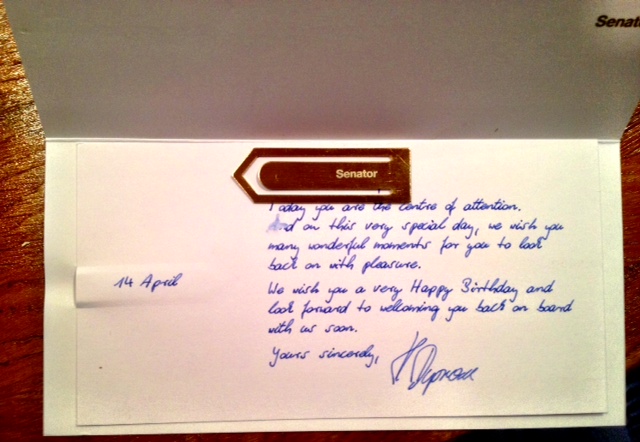 Senat
Senator
Today you are the centre of attention.
And on this very special day, we wish you
many wonderful moments for you to look
back on with pleasure.
14 April
We wish you a very Happy Birthday and
look forward to welcoming you back on board
with us soon.
Yours sincerely,